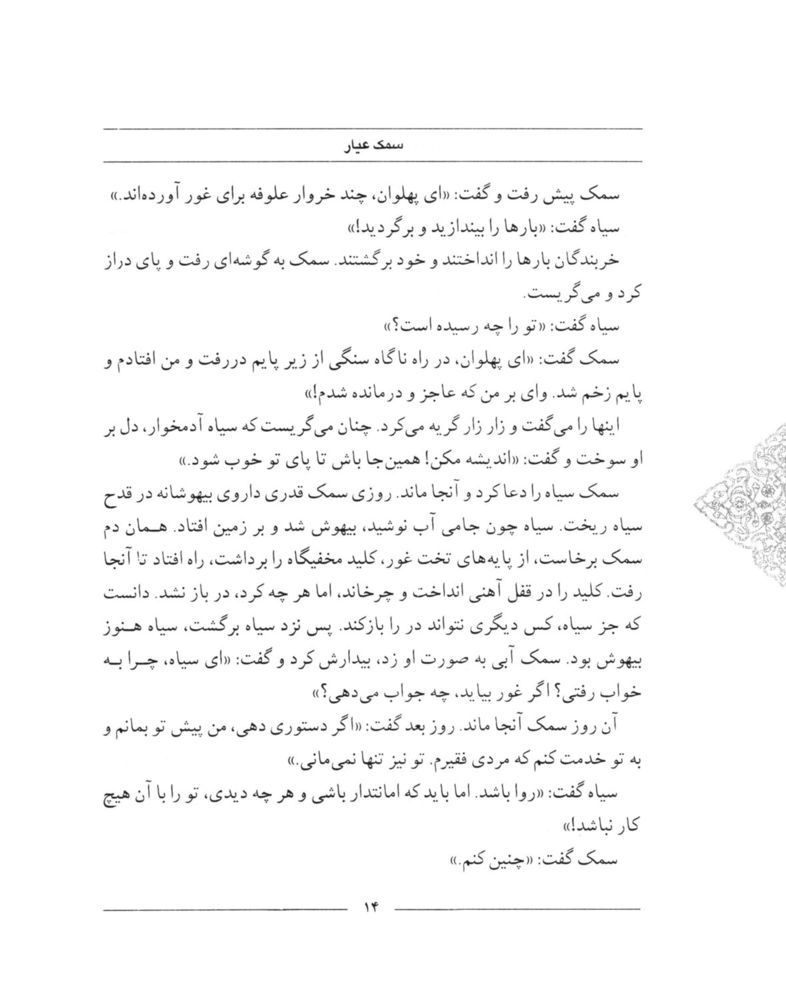 سمک عیار
سمک پیش رفت و گفت: «ای پهلوان، چند خروار علوفه برای غور آورده‌اند.»
سیاه گفت: «بارها را بیندازید و برگردید!»
خربندگان بارها را انداختند و خود برگشتند. سمک به گوشه‌ای رفت و پای دراز
کرد و می‌گریست.
سیاه گفت: «تو را چه رسیده است؟»
سمک گفت: «ای پهلوان، در راه ناگاه سنگی از زیر پایم دررفت و من افتادم و
پایم زخم شد. وای بر من که عاجز و درمانده شدم!»
اینها را می‌گفت و زار زار گریه می‌کرد. چنان می‌گریست که سیاه آدمخوار، دل بر
او سوخت و گفت: «اندیشه مکن! همین‌جا باش تا پای تو خوب شود.»
سمک سیاه را دعا کرد و آنجا ماند. روزی سمک قدری داروی بیهوشانه در قدح
سیاه ریخت. سیاه چون جامی آب نوشید، بیهوش شد و بر زمین افتاد. همان دم
سمک برخاست، از پایه‌های تخت غور، کلید مخفیگاه را برداشت، راه افتاد تا آنجا
رفت. کلید را در قفل آهنی انداخت و چرخاند، اما هر چه کرد، در باز نشد. دانست
که جز سیاه، کس دیگری نتواند در را بازکند. پس نزد سیاه برگشت، سیاه هنوز
بیهوش بود. سمک آبی به صورت او زد، بیدارش کرد و گفت: «ای سیاه، چرا به
خواب رفتی؟ اگر غور بیاید، چه جواب می‌دهی؟»
آن روز سمک آنجا ماند. روز بعد گفت: «اگر دستوری دهی، من پیش تو بمانم و
به تو خدمت کنم که مردی فقیرم. تو نیز تنها نمی‌مانی.»
سیاه گفت: «روا باشد. اما باید که امانتدار باشی و هر چه دیدی، تو را با آن هیچ
کار نباشد!»
سمک گفت: «چنین کنم.»
۱۴